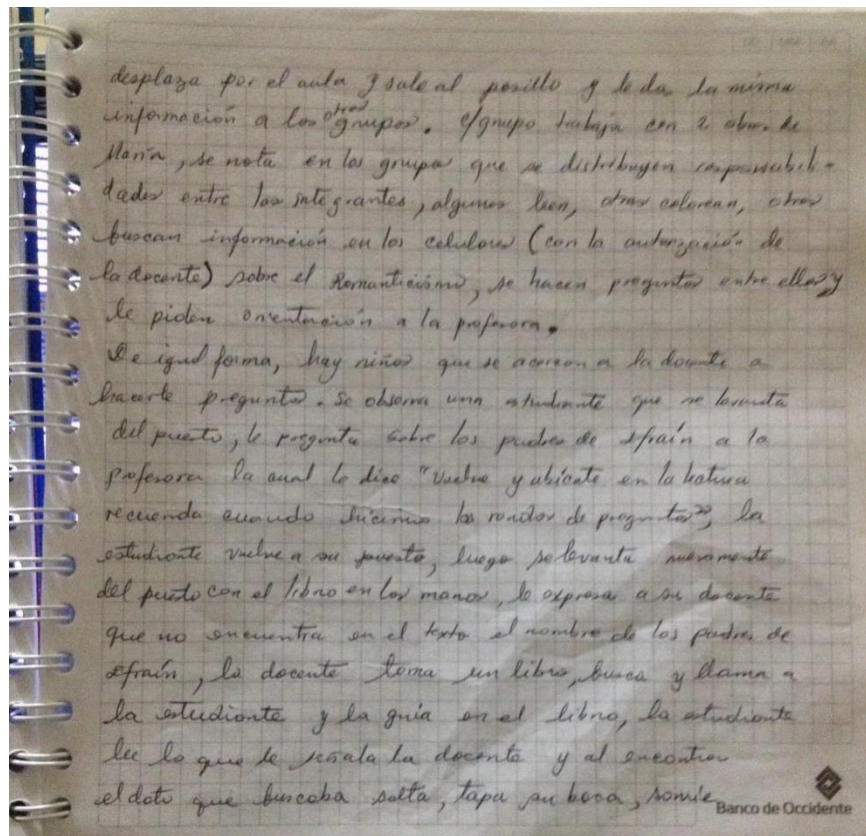 desplaza por el aula y sale al pasillo y le da la misma
información a los otros grupos. c/grupo trabaja con 2 obras de
María, se nota en los grupos que se distribuyen responsabili-
dades entre los integrantes, algunos leen, otros colorean, otros
buscan información en los celulares (con la autorización de
la docente) sobre el Romanticismo, se hacen preguntas entre ellos y
le piden orientación a la profesora.
De igual forma, hay niños que se acercan a la docente a
hacerle preguntas. Se observa una estudiante que se levanta
del puesto, le pregunta sobre los padres de Efraín a la
profesora la cual le dice "Vuelve y ubícate en la lectura
recuerda cuando hicimos las rondas de preguntas", la
estudiante vuelve a su puesto, luego se levanta nuevamente
del puesto con el libro en las manos, le expresa a su docente
que no encuentra en el texto el nombre de los padres de
Efraín, la docente toma un libro, busca y llama a
la estudiante y la guía en el libro, la estudiante
lee lo que le señala la docente y al encontrar
el dato que buscaba salta, tapa su boca, sonríe
Banco de Occidente